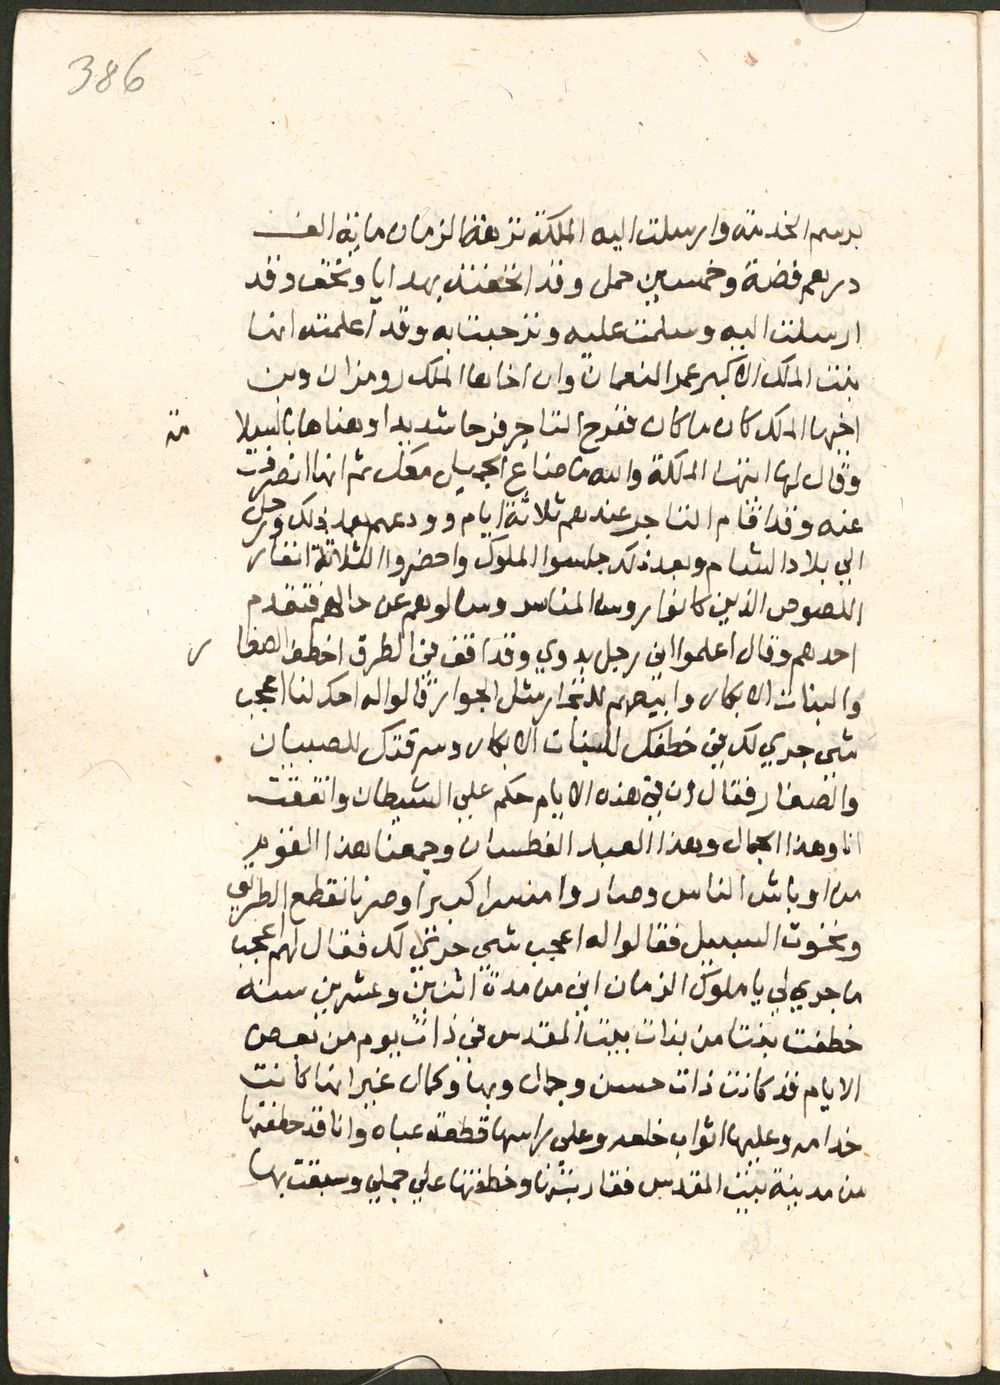 386
برسم الخدمة وارسلت اليه الملكة نزهة الزمان ماية الف
درهم فضة وخمسين حمل وقد اتحفته بهدايا وتحف وقد
ارسلت اليه وسلمت عليه وترحبت به وقد اعلمته انها
بنت الملك الاكبر عمر النعمان وان اخاها الملك رومزان وبن
اخيها الملك كان ما كان ففرح التاجر فرحا شديدا وهناها بالسلا
مة
وقال لها ايتها الملكة والله ما ضاع الجميل معك ثم انها انصرفت
عنه وقد اقام التاجر عندهم ثلاثة ايام وودعهم بعد ذلك ورحل
الي بلاد الشام وبعد ذلك جلسوا الملوك واحضروا الثلاثة انفار
اللصوص الذين كانوا روس المناسر وسالوهم عن حالهم فتقدم
احدهم وقال اعلموا اني رجل بدوي وقد اقف في الطرق اخطف الصغا
ر
والبنات الابكار وابيعهم للتجار مثل الجوار قالوا له احك لنا اعجب
شي جري لك في خطفك للبنات الابكار وسرقتك للصبيان
والصغار فقال ان في هذه الايام حكم علي الشيطان واتفقت
انا وهذا الجمال وهذا العبد الغطسان وجمعنا هذا القوم
من اوباش الناس وصاروا منسرا كبيرا وصرنا نقطع الطريق
ونخوف السبيل فقالوا له اعجب شي جري لك فقال لهم اعجب
ما جري لي يا ملوك الزمان اني من مدة اثنين وعشرين سنه
خطفت بنتا من بنات بيت المقدس في ذات يوم من بعض
الايام قد كانت ذات حسن وجمال وبها وكمال غير انها كانت
خدامه وعليها اثواب خلعه وعلي راسها قطعة عباه وانا قد خطفتها
من مدينة بيت المقدس وخطفتها علي جملي وسبقت بها